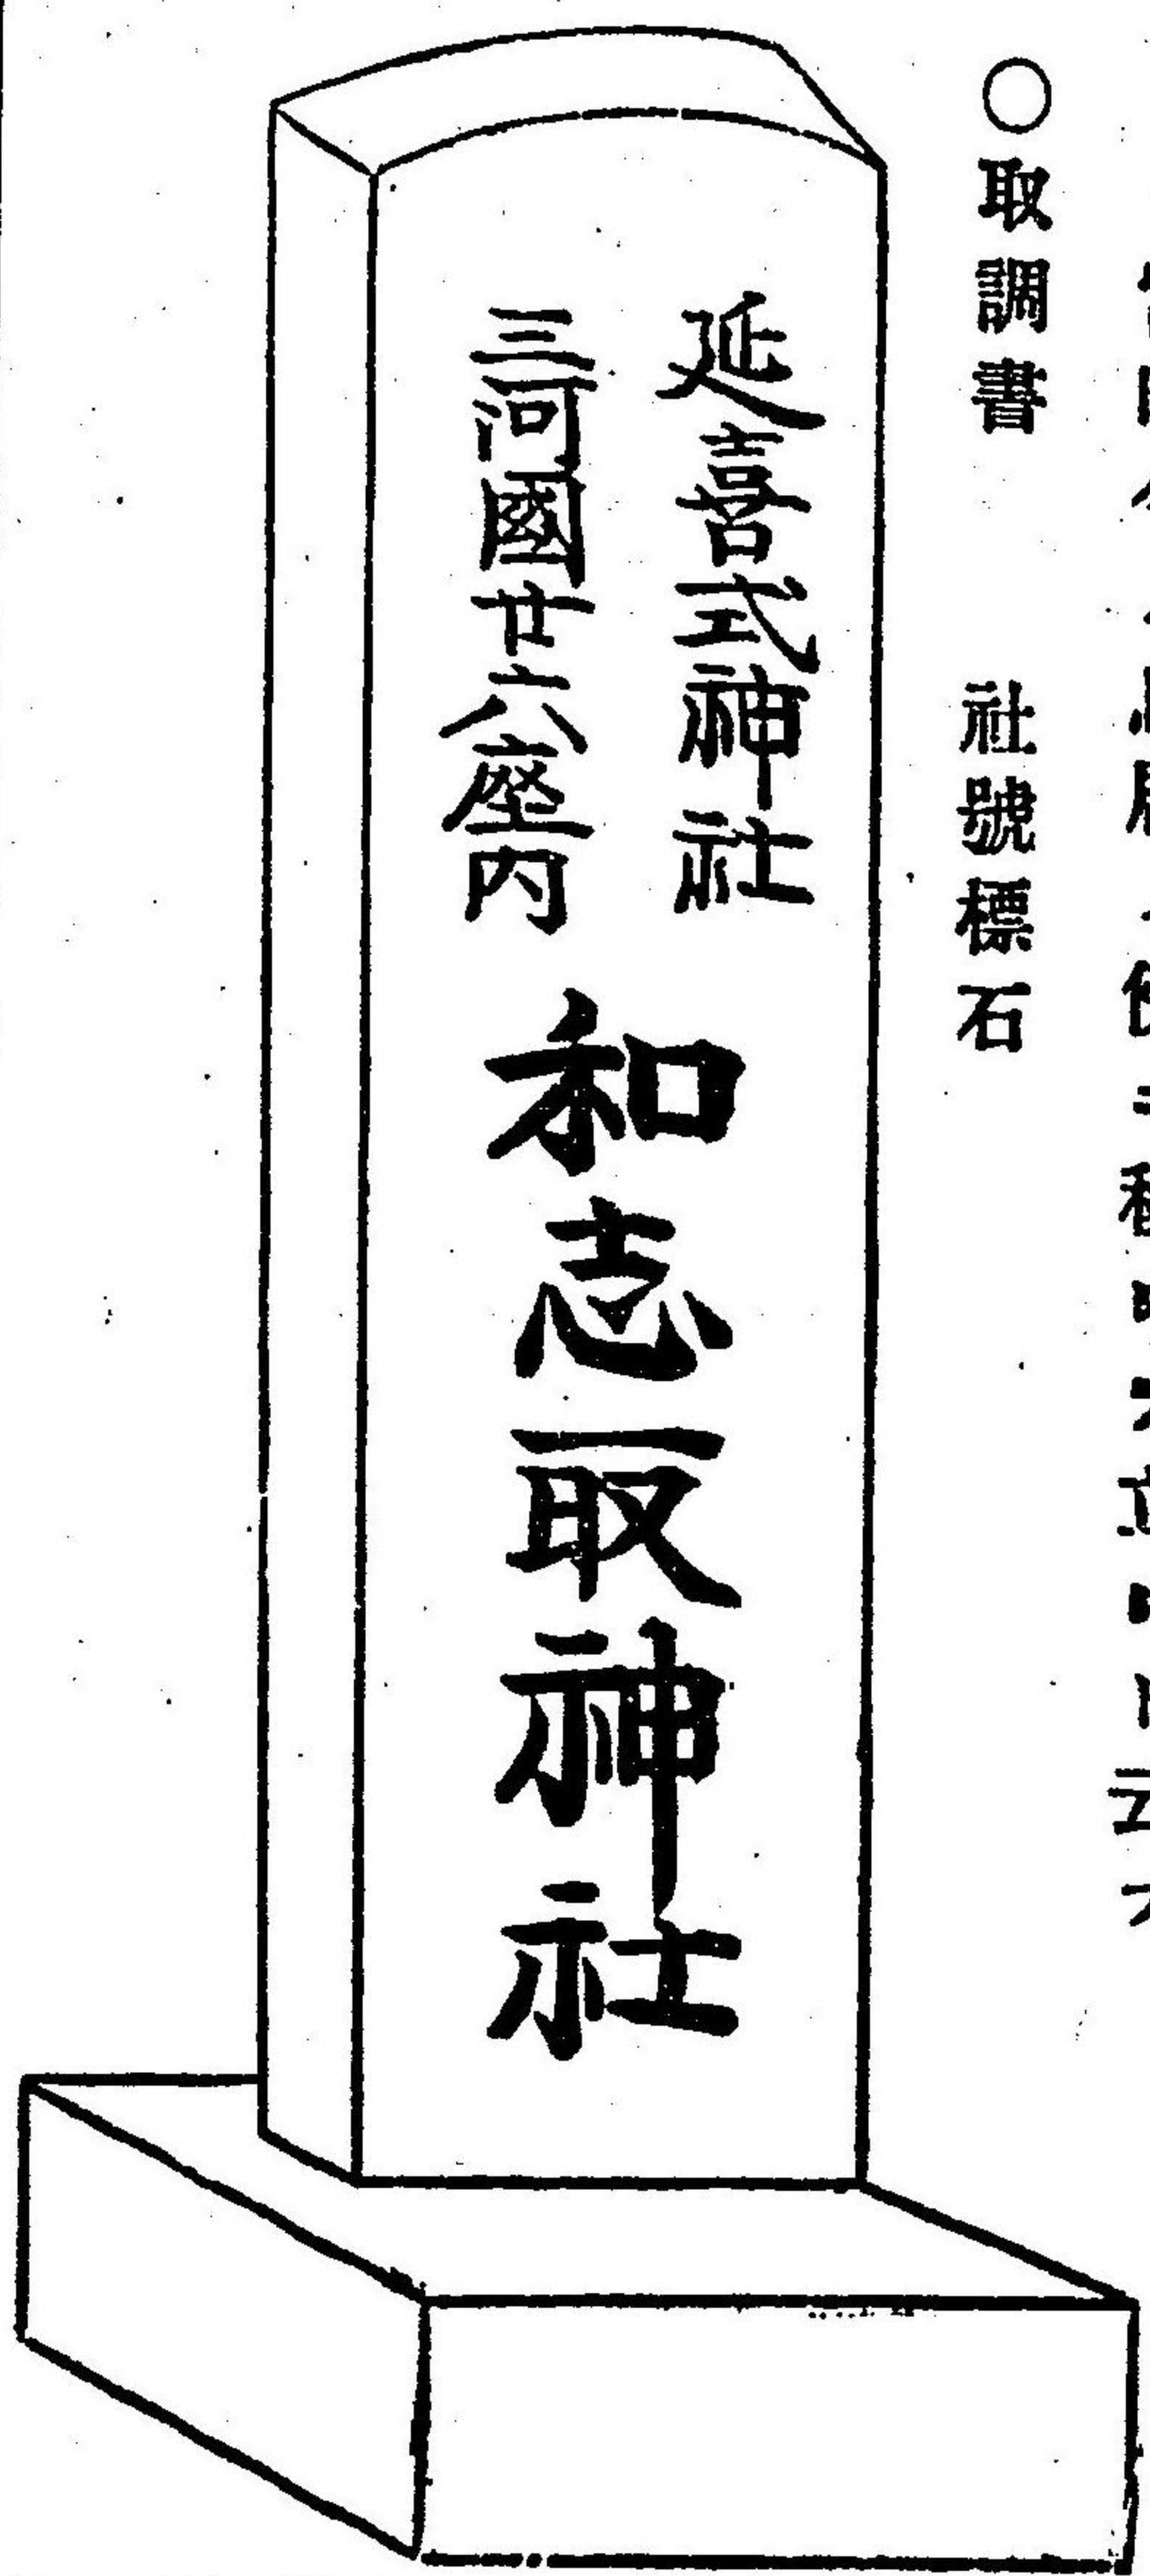 〇取調書　社號標石
延喜式神社
三河國廿六座内
和志取神社